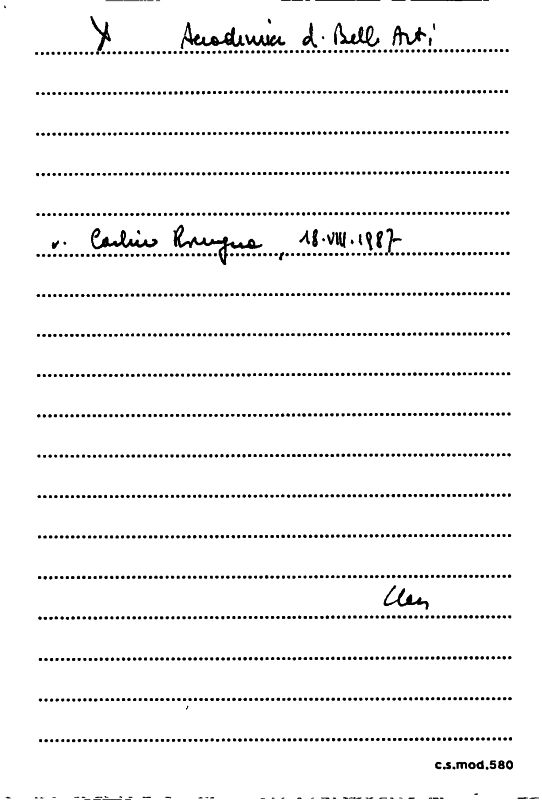 X Accademia d. Belle Arti
v. Carlino Romagna, 18.VIII.1987
c.s.mod.580